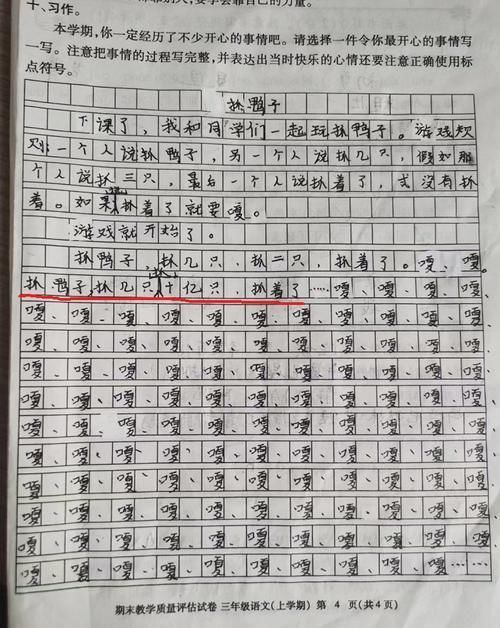 要学会靠自己的力量。
十、习作。
本学期,你一定经历了不少开心的事情吧。请选择一件令你最开心的事情写
一写。注意把事情的过程写完整,并表达出当时快乐的心情还要注意正确使用标
点符号。
抓鸭子
下课了，我和同学们一起玩抓鸭子。游戏规
则一个人说抓鸭子，另一个人说抓几只，假如那
个人说抓三只，最后一个人说抓着了，或没有抓
着。如果抓着了就要嘎。
游戏就开始了。
抓鸭子，抓几只，抓二只，抓着了。嘎、嘎、
抓鸭子，抓几只，抓十亿只，抓着了……嘎、嘎、嘎、
嘎、嘎、嘎、嘎、嘎、嘎、嘎、嘎、嘎、嘎、
嘎、嘎、嘎、嘎、嘎、嘎、嘎、嘎、嘎、嘎、
嘎、嘎、嘎、嘎、嘎、嘎、嘎、嘎、嘎、嘎、
嘎、嘎、嘎、嘎、嘎、嘎、嘎、嘎、嘎、嘎、
嘎、嘎、嘎、嘎、嘎、嘎、嘎、嘎、嘎、嘎、
嘎、嘎、嘎、嘎、嘎、嘎、嘎、嘎、嘎、嘎、
嘎、嘎、嘎、嘎、嘎、嘎、嘎、嘎、嘎、嘎、
嘎、嘎、嘎、嘎、嘎、嘎、嘎、嘎、嘎、嘎、
嘎、嘎、嘎、嘎、嘎、嘎、嘎、嘎、嘎、嘎、
嘎、嘎、嘎、嘎、嘎、嘎、嘎、嘎、嘎、嘎……
期末教学质量评估试卷 三年级语文(上学期) 第 4 页(共4页)